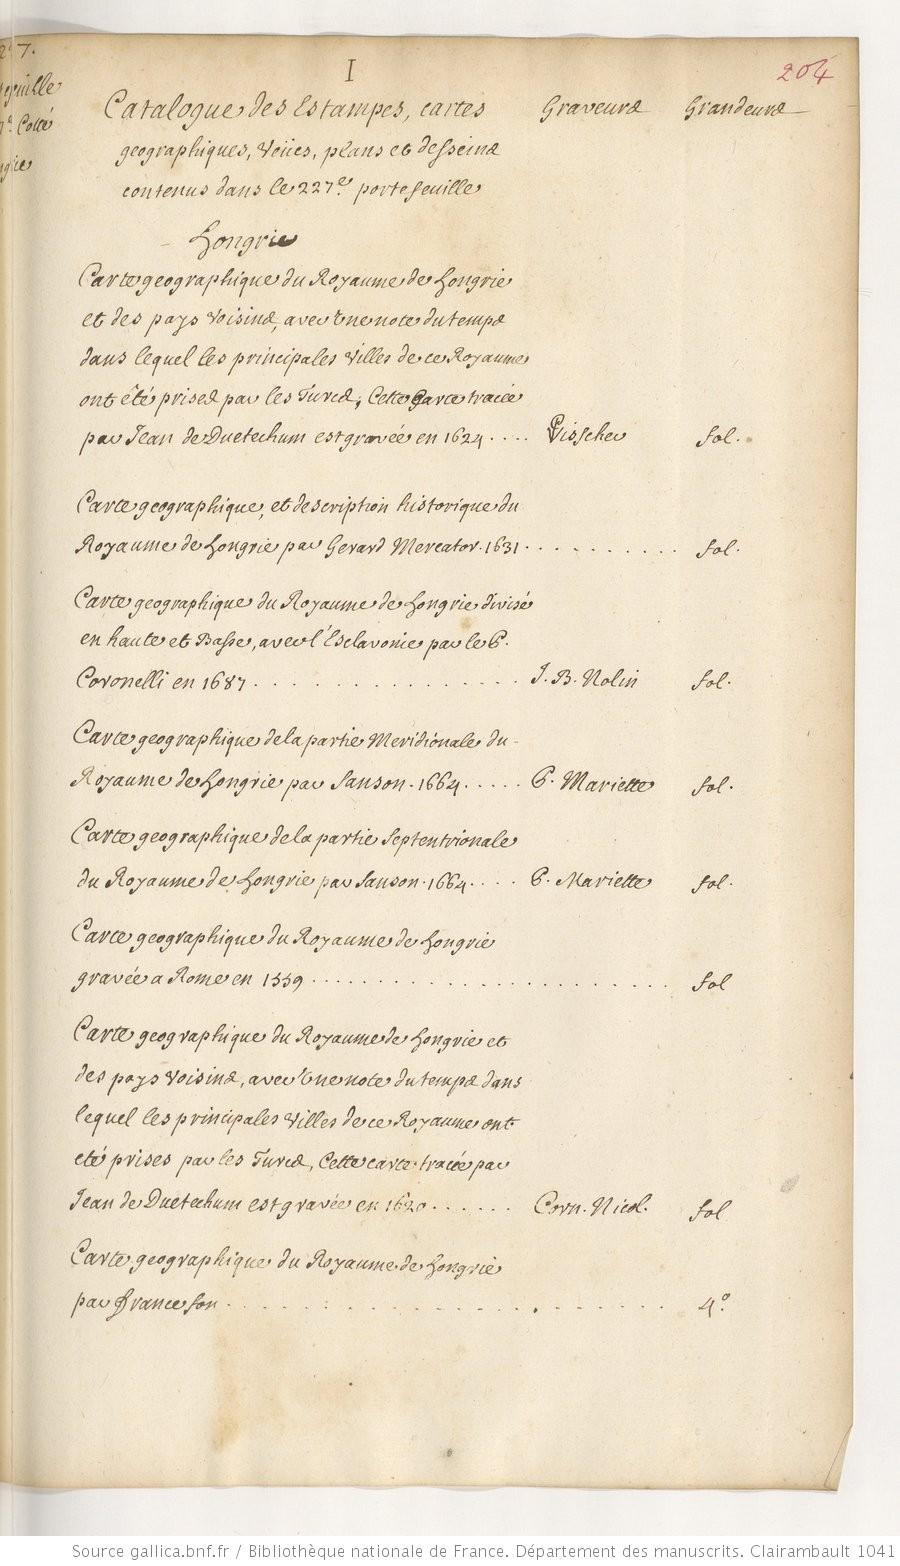 I
204
Catalogue des Estampes, cartes Graveurs Grandeurs
geographiques, Veües, plans et desseins
contenus dans le 227.e portefeuille
Hongrie
Carte geographique du Royaume de Hongrie
et des pays voisins, avec Une note du temps
dans lequel les principales Villes de ce Royaume
ont êté prises par les Turcs, Cette Carte tracée
par Jean de Duetechum est gravée en 1624 .... Visscher fol.
Carte geographique, et description historique du
Royaume de Hongrie par Gerard Mercator. 1631 .......... fol.
Carte geographique du Royaume de Hongrie divisé
en haute et Basse, avec l'Esclavonie par le P.
Coronelli en 1687 ................ J. B. Nolin fol.
Carte geographique de la partie Meridionale du
Royaume de Hongrie par Sanson. 1664 ..... P. Mariette fol.
Carte geographique de la partie Septentrionale
du Royaume de Hongrie par Sanson. 1664 .... P. Mariette fol.
Carte geographique du Royaume de Hongrie
gravée a Rome en 1559 ...................... fol
Carte geographique du Royaume de Hongrie et
des pays Voisins, avec Une note du temps dans
lequel les principales Villes de ce Royaume ont
eté prises par les Turcs, Cette carte tracée par
Jean de Duetechum est gravée en 1620 ...... Corn. Nicol. fol
Carte geographique du Royaume de Hongrie
par .......................... 4.o
Source gallica.bnf.fr / Bibliothèque nationale de France. Département des manuscrits. Clairambault 1041